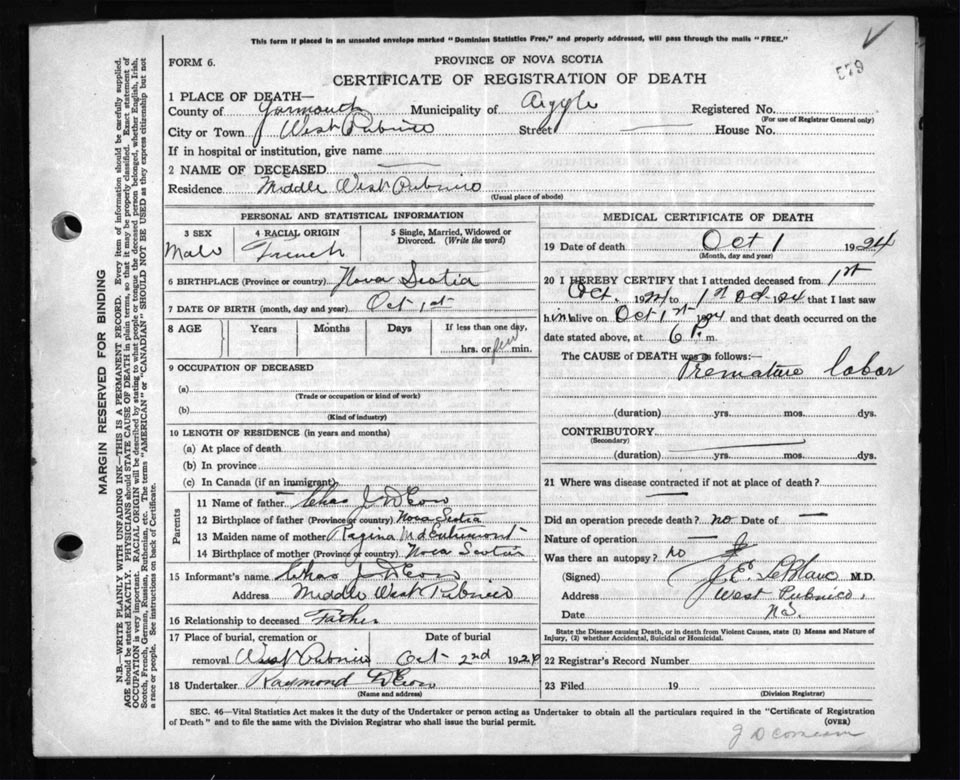 This form if placed in an unsealed envelope marked "Dominion Statistics Free," and properly addressed, will pass through the mails "FREE."
579
FORM 6.
PROVINCE OF NOVA SCOTIA
CERTIFICATE OF REGISTRATION OF DEATH
1 PLACE OF DEATH—
County of Yarmouth Municipality of Argyle Registered No.
(For use of Registrar General only)
City or Town West Pubnico Street — House No.
If in hospital or institution, give name
2 NAME OF DECEASED —
Residence Middle West Pubnico
(Usual place of abode)
PERSONAL AND STATISTICAL INFORMATION
3 SEX 4 RACIAL ORIGIN 5 Single, Married, Widowed or Divorced. (Write the word)
Male French
6 BIRTHPLACE (Province or country) Nova Scotia
7 DATE OF BIRTH (month, day and year) Oct 1st
8 AGE Years Months Days If less than one day,
hrs. or few min.
9 OCCUPATION OF DECEASED
(a)
(Trade or occupation or kind of work)
(b)
(Kind of industry)
10 LENGTH OF RESIDENCE (in years and months)
(a) At place of death
(b) In province
(c) In Canada (if an immigrant)
Parents
11 Name of father Chas J D'Eon
12 Birthplace of father (Province or country) Nova Scotia
13 Maiden name of mother Regina M d'Entremont
14 Birthplace of mother (Province or country) Nova Scotia
15 Informant's name Chas J D'Eon
Address Middle West Pubnico
16 Relationship to deceased Father
17 Place of burial, cremation or Date of burial
removal West Pubnico Oct 2nd 1924
18 Undertaker Raymond D'Eon
(Name and address)
MEDICAL CERTIFICATE OF DEATH
19 Date of death Oct 1 1924
(Month, day and year)
20 I HEREBY CERTIFY that I attended deceased from 1st
Oct. 1924 to 1st Oct 1924 that I last saw
him alive on Oct 1st 1924 and that death occurred on the
date stated above, at 6 P. m.
The CAUSE of DEATH was as follows:—
Premature labor
(duration) yrs. mos. dys.
CONTRIBUTORY
(Secondary)
(duration) yrs. mos. dys.
21 Where was disease contracted if not at place of death?
—
Did an operation precede death? no Date of —
Nature of operation —
Was there an autopsy? no
(Signed) J. E. LeBlanc M.D.
Address West Pubnico,
Date N.S.
State the Disease causing Death, or in death from Violent Causes, state (1) Means and Nature of
Injury, (2) whether Accidental, Suicidal or Homicidal.
22 Registrar's Record Number
23 Filed 19
(Division Registrar)
SEC. 46—Vital Statistics Act makes it the duty of the Undertaker or person acting as Undertaker to obtain all the particulars required in the "Certificate of Registration
of Death" and to file the same with the Division Registrar who shall issue the burial permit.
(OVER)
J D Comeau
MARGIN RESERVED FOR BINDING
N.B.—WRITE PLAINLY WITH UNFADING INK—THIS IS A PERMANENT RECORD. Every item of information should be carefully supplied.
AGE should be stated EXACTLY. PHYSICIANS should STATE CAUSE OF DEATH in plain terms, so that it may be properly classified. Exact statement of
OCCUPATION is very important. RACIAL ORIGIN will be described by stating to what people or tongue the deceased person belonged, whether English, Irish,
Scotch, French, German, Russian, Ruthenian, etc. The terms "AMERICAN" or "CANADIAN" SHOULD NOT BE USED as they express citizenship but not
a race or people. See instructions on back of Certificate.